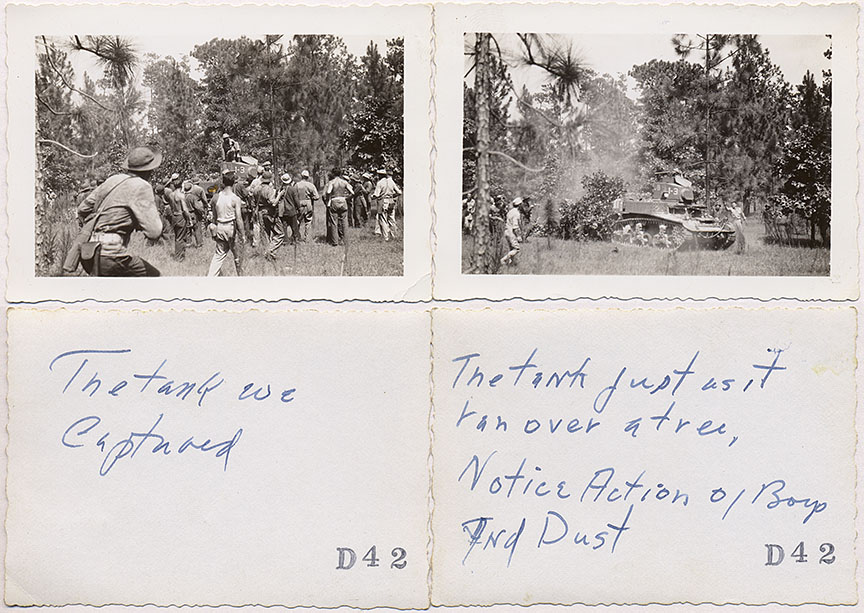 The tank we
Captured
D42
The tank just as it
ran over a tree,
Notice Action of Boys
And Dust
D42